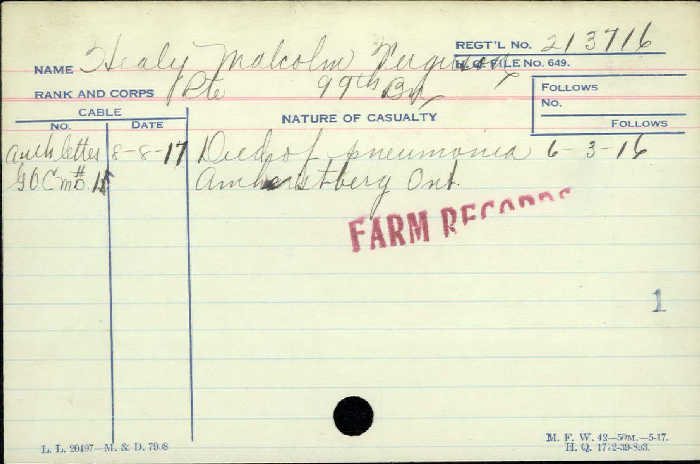 REGT'L NO. 213716
NAME Healy Malcolm Ferguson
H. Q. FILE NO. 649.
RANK AND CORPS Pte 99th Bn
FOLLOWS
NO.
FOLLOWS
CABLE
NO. DATE
NATURE OF CASUALTY
auth letter 8-8-17 Died of pneumonia 6-3-16
G O C m D #1 Amherstberg Ont.
FARM RECORDS
1
L. L. 20497—M. & D. 7988
M. F. W. 42—50M.—5-17.
H. Q. 1772-39-893.